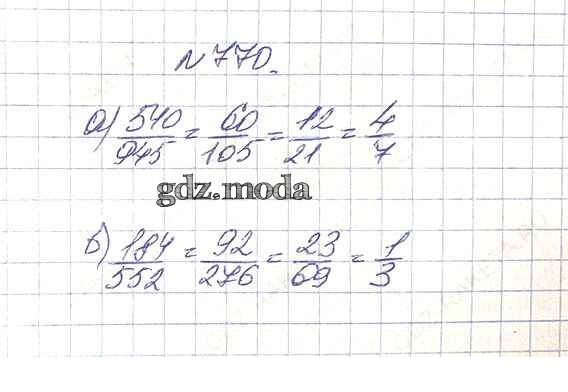 №770.
а) 540/945 = 60/105 = 12/21 = 4/7
gdz.moda
б) 184/552 = 92/276 = 23/69 = 1/3